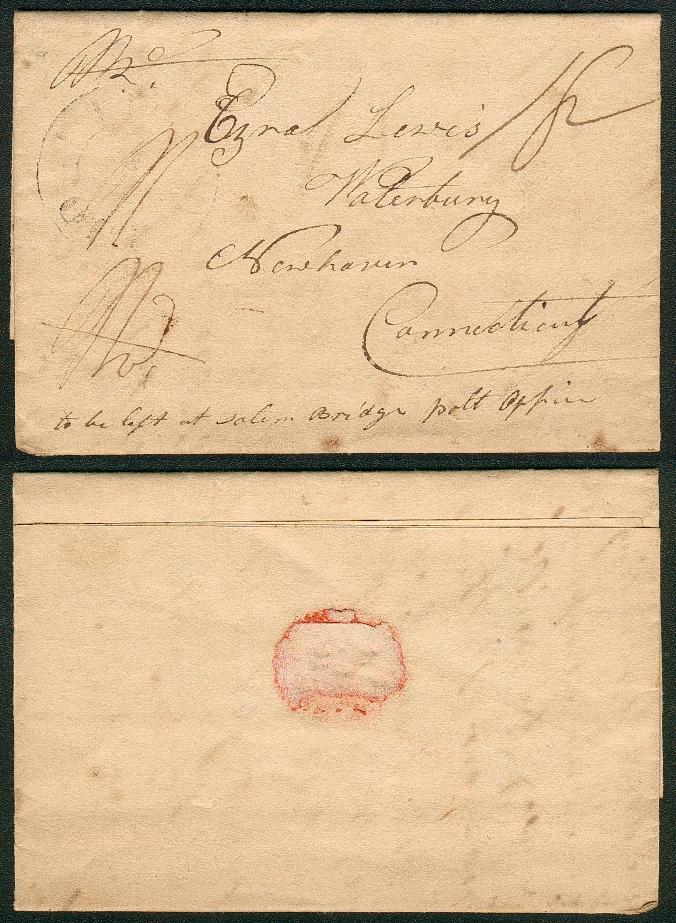 Mr.
Ezra Lewis
Waterbury
Newhaven
Connecticut
to be left at Salem Bridge post Office